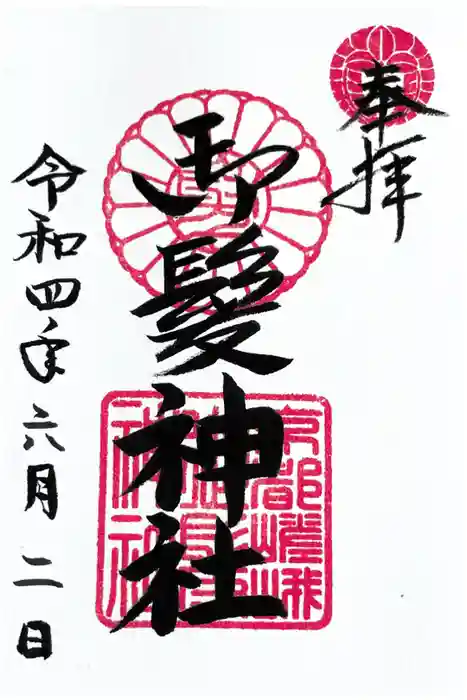 奉拝
御髪神社
令和四年六月二日